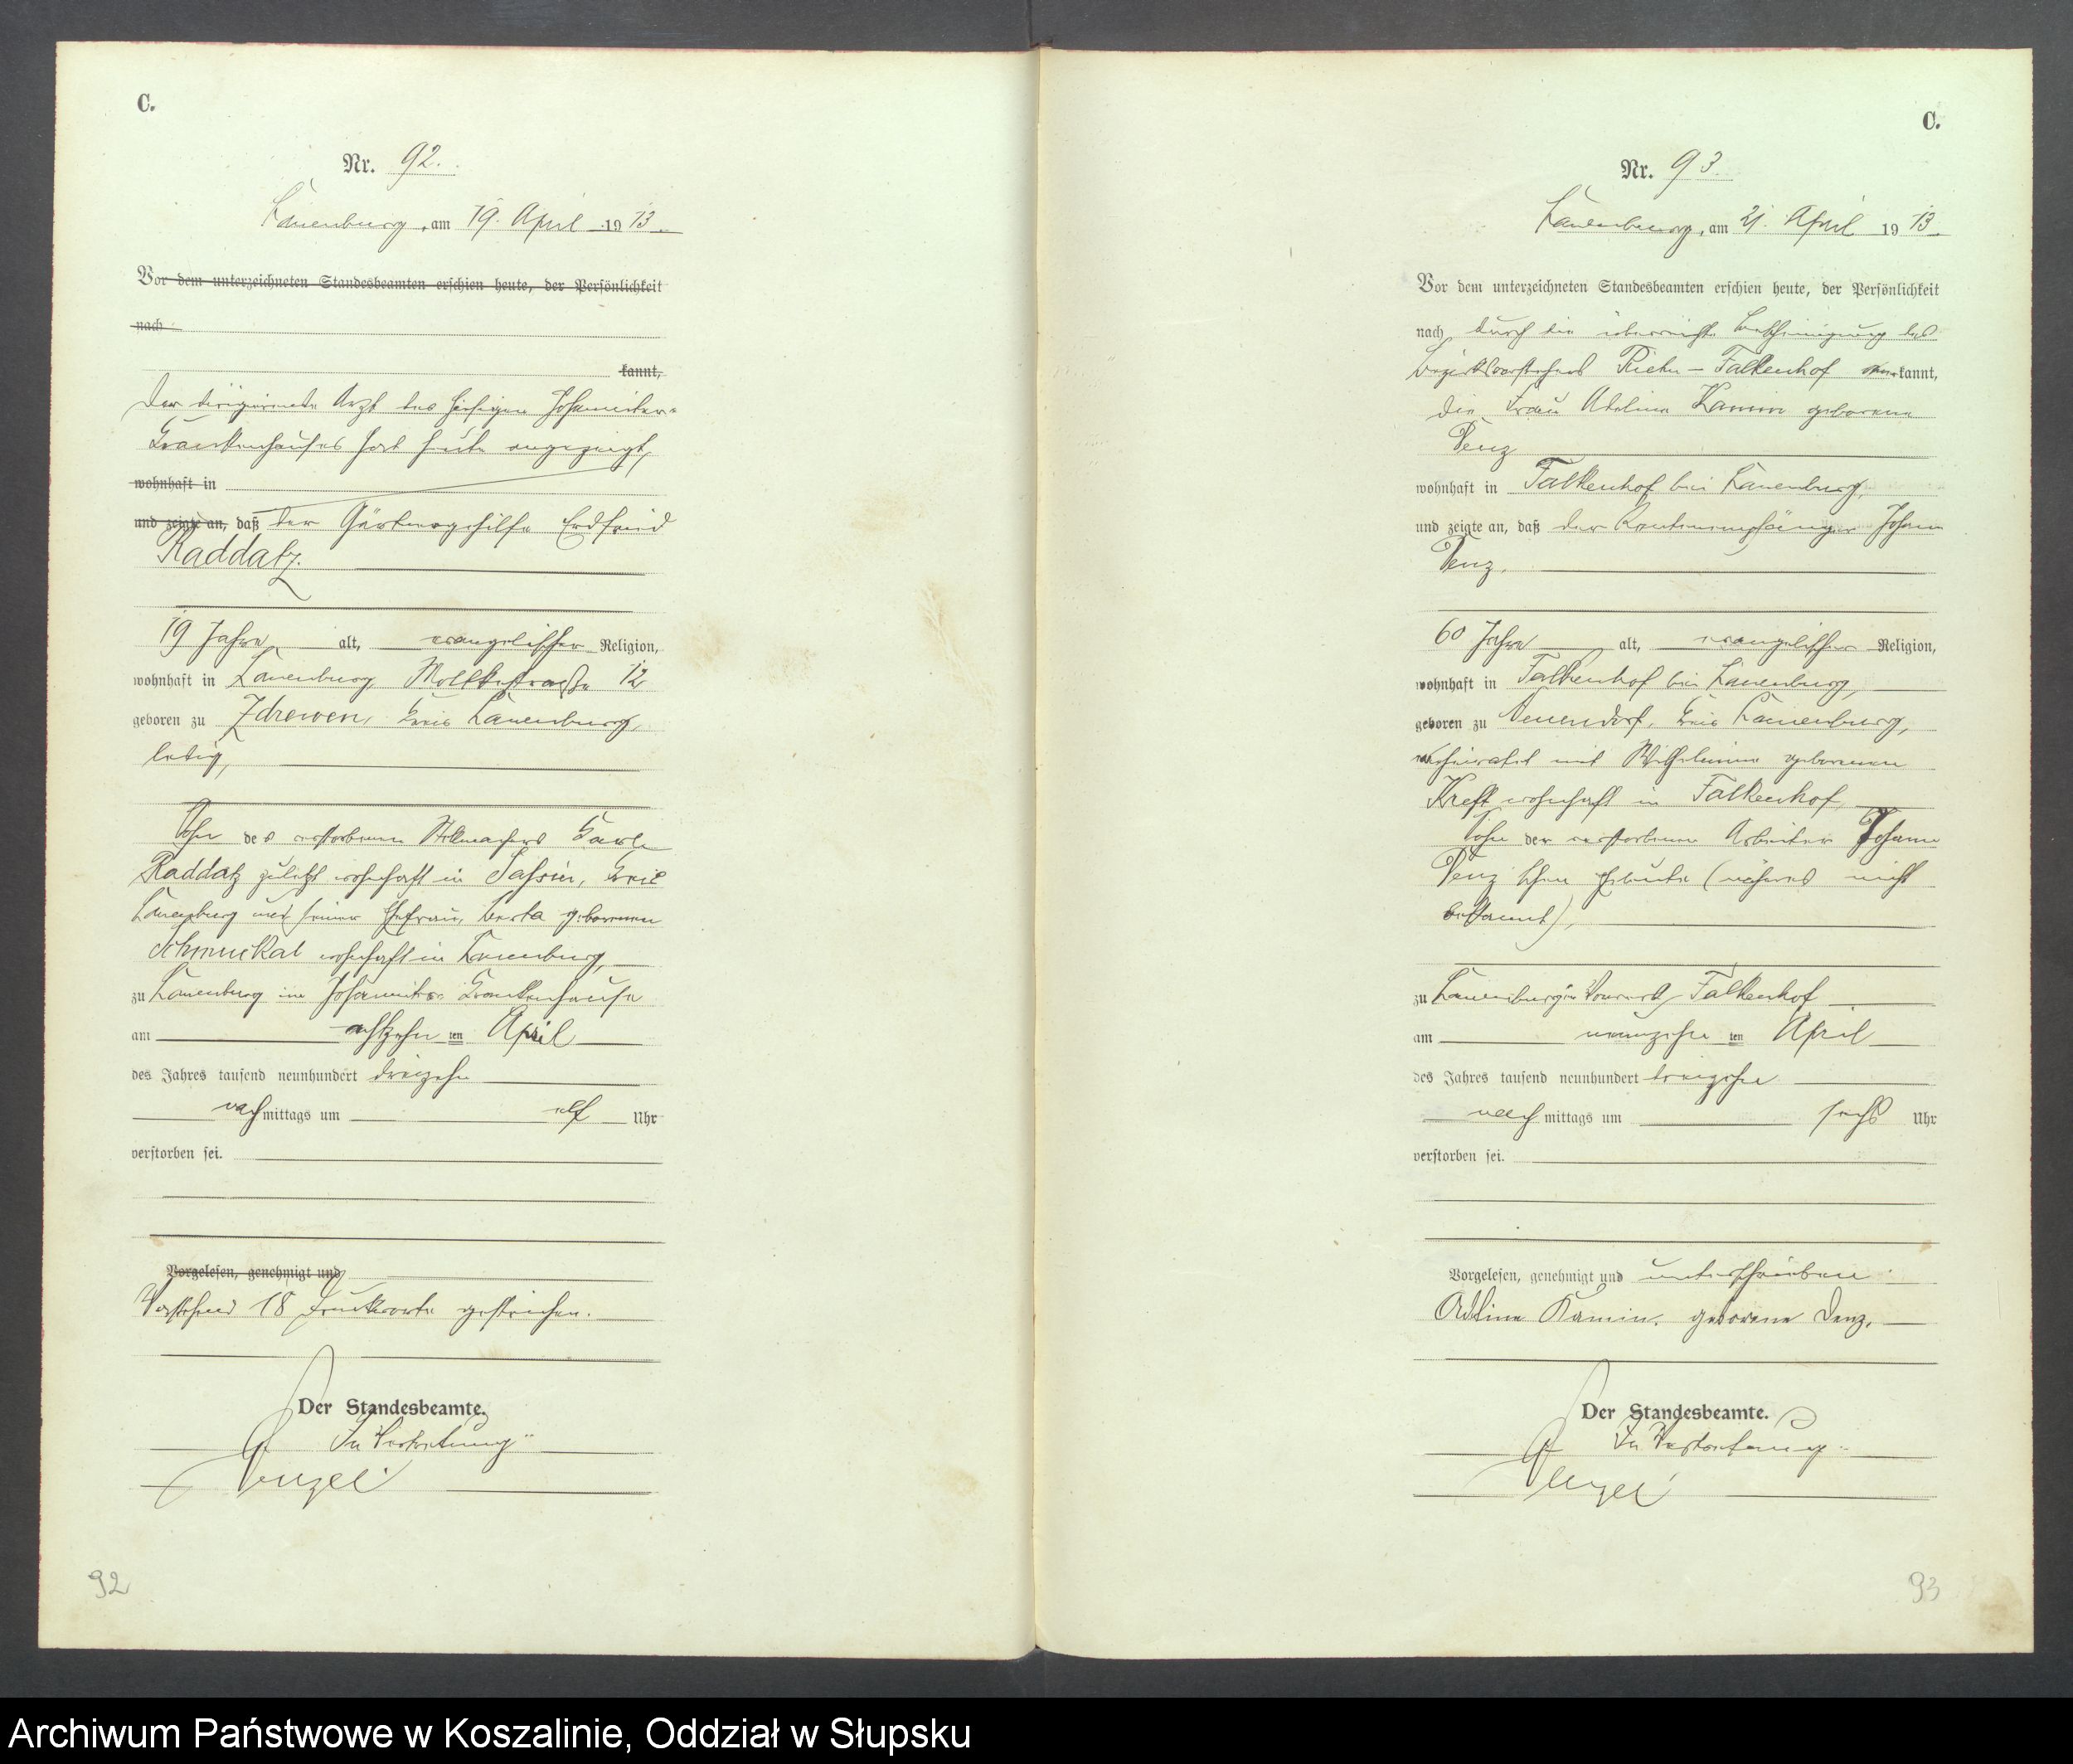 C.
Nr. 92.
Lauenburg, am 19. April 1913.
Vor dem unterzeichneten Standesbeamten erschien heute, der Persönlichkeit
nach
kannt,
Der dirigierende Arzt des hiesigen Johanniter-
Krankenhauses hat heute angezeigt,
wohnhaft in
und zeigte an, daß der Gärtnergehilfe
Raddatz.
19 Jahre alt, evangelischer Religion,
wohnhaft in Lauenburg Moltkestraße 12
geboren zu Zdrewen, Kreis Lauenburg,
ledig,
Sohn des verstorbenen Stellmachers Karl
Raddatz zuletzt wohnhaft in Sassin, Kreis
Lauenburg und seiner Ehefrau, Berta geborenen
Schmuckal wohnhaft in Lauenburg,
zu Lauenburg im Johanniter Krankenhause
am achtzehnten April
des Jahres tausend neunhundert dreizehn
nachmittags um elf Uhr
verstorben sei.
Vorgelesen, genehmigt und
Vorstehend 18 Druckworte gestrichen.
Der Standesbeamte.
In Vertretung
92
C.
Nr. 93.
Lauenburg, am 21. April 1913.
Vor dem unterzeichneten Standesbeamten erschien heute, der Persönlichkeit
nach durch die überreichte Bescheinigung des
Bezirksvorstehers Falkenhof anerkannt,
die Frau Adeline Kamin geborene
Denz
wohnhaft in Falkenhof bei Lauenburg,
und zeigte an, daß der Rentenempfänger Johann
Denz,
60 Jahre alt, evangelischer Religion,
wohnhaft in Falkenhof bei Lauenburg,
geboren zu Neuendorf, Kreis Lauenburg,
verheiratet mit Wilhelmine geborenen
Kreft wohnhaft in Falkenhof,
Sohn der verstorbenen Arbeiter Johann
Denz schen Eheleute (näheres nicht
bekannt),
zu Lauenburg in Vorwerk Falkenhof
am neunzehnten April
des Jahres tausend neunhundert dreizehn
nachmittags um sechs Uhr
verstorben sei.
Vorgelesen, genehmigt und unterschrieben
Adeline Kamin. geborene Denz.
Der Standesbeamte.
In Vertretung
93
Archiwum Państwowe w Koszalinie, Oddział w Słupsku